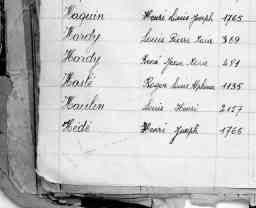 Haquin Henri Louis Joseph 1765
Hardy Louis Pierre Marie 369
Hardy René Jean Marie 491
Hasté Roger Louis Alphonse 1135
Haulen Louis Henri 2157
Hédé Henri Joseph 1766